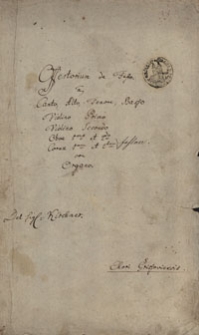 Offertorium de
a
Canto, Alto, Tenore, Basso
Violino Primo
Violino Secondo
Oboe 1mo et 2do
Corno 1mo et 2do
con
Organo
Del Sigl. Kirchner
Chori